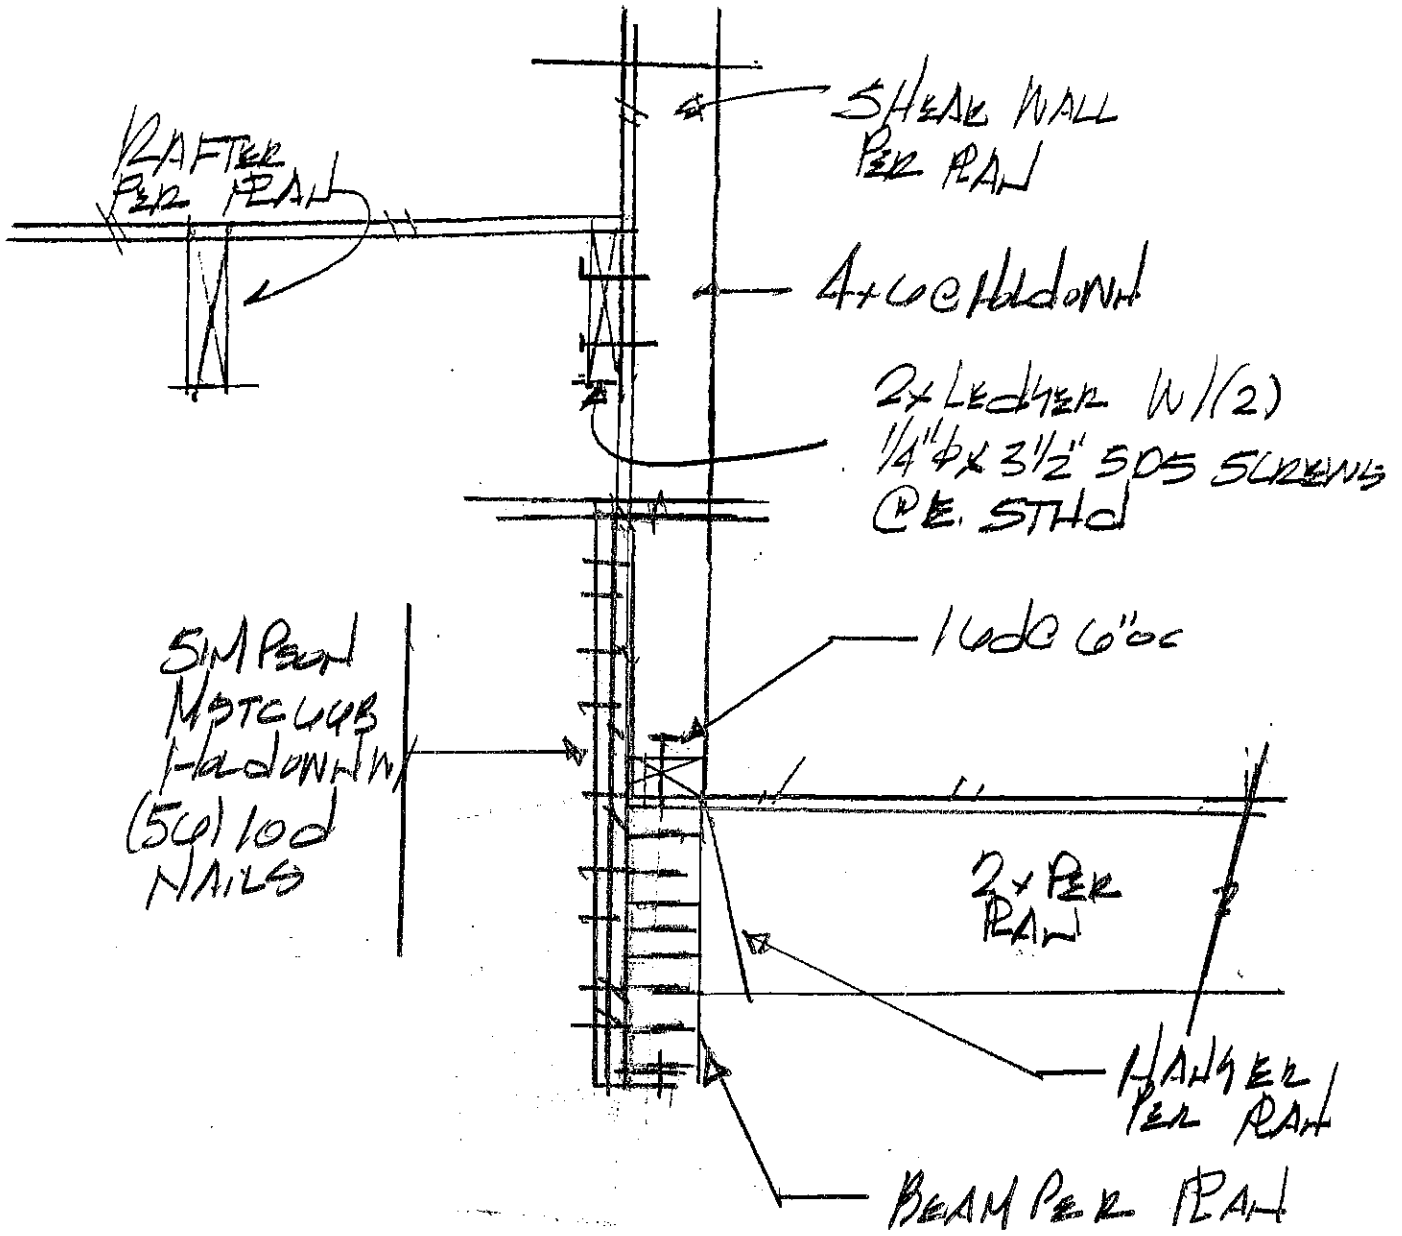 RAFTER
PER PLAN
SHEAR WALL
PER PLAN
4x6@HoldowN
2x LEdgER W/(2)
1/4"φx 3 1/2" SDS SCREWS
@E. STUd
16d@ 6"oc
SIMPSON
MSTC66B
HoldowN W/
(56) 10d
NAILS
2x PER
PLAN
HANgER
PER PLAN
BEAM PER PLAN